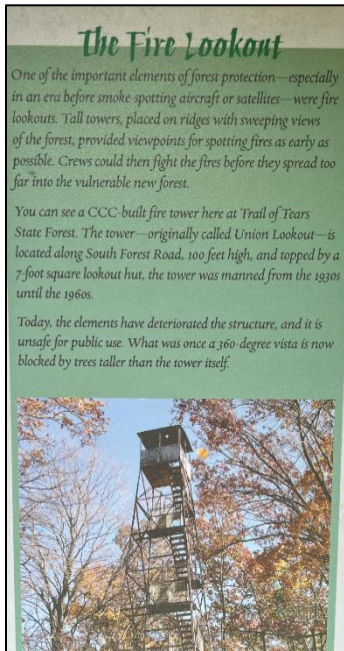 The Fire Lookout
One of the important elements of forest protection—especially
in an era before smoke-spotting aircraft or satellites—were fire
lookouts. Tall towers, placed on ridges with sweeping views
of the forest, provided viewpoints for spotting fires as early as
possible. Crews could then fight the fires before they spread too
far into the vulnerable new forest.
You can see a CCC-built fire tower here at Trail of Tears
State Forest. The tower—originally called Union Lookout—is
located along South Forest Road, 100 feet high, and topped by a
7-foot square lookout hut, the tower was manned from the 1930s
until the 1960s.
Today, the elements have deteriorated the structure, and it is
unsafe for public use. What was once a 360-degree vista is now
blocked by trees taller than the tower itself.